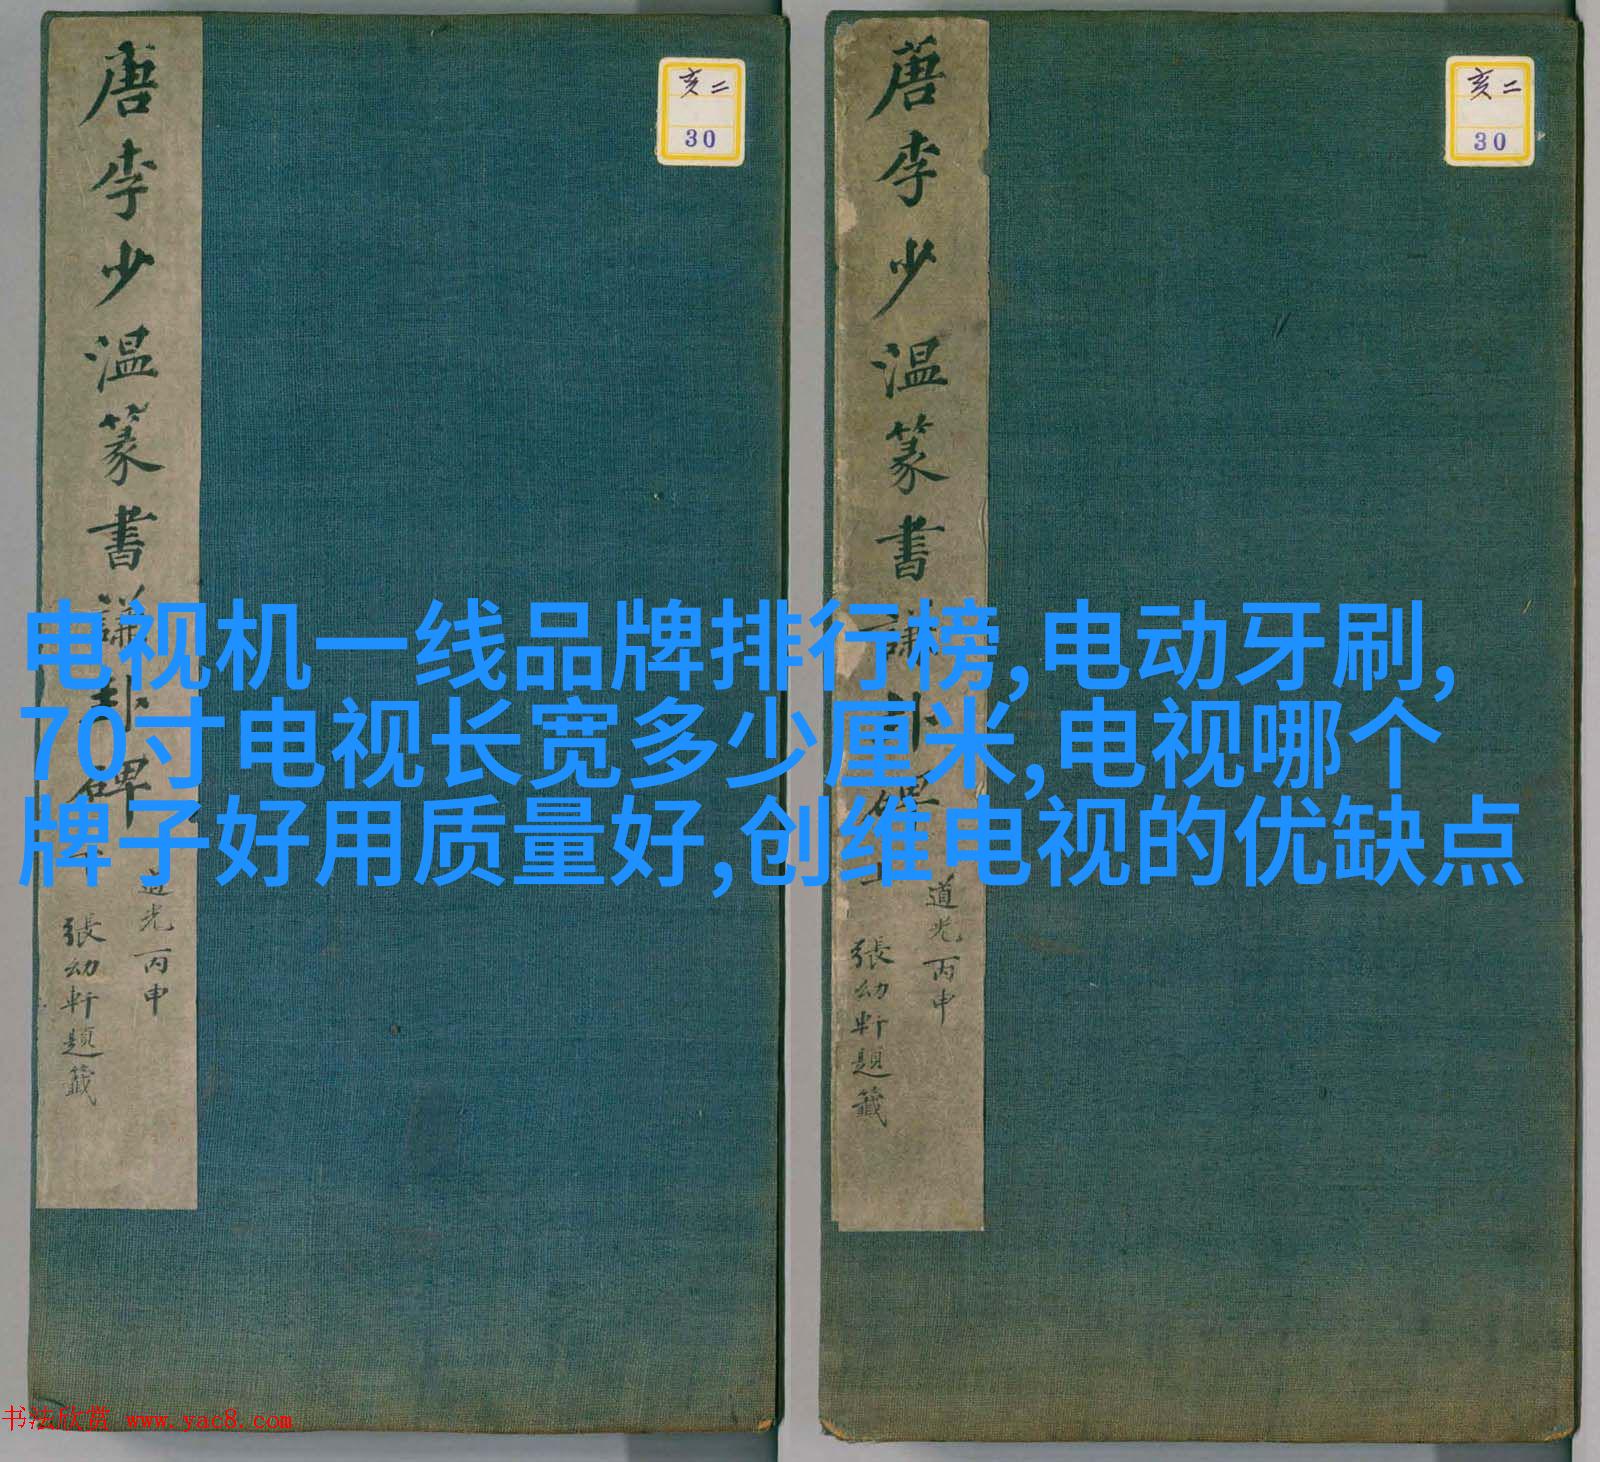 唐李少温篆書謙卦碑上
道光丙申
張幼軒題籤
亥二
30
唐李少温篆書謙卦碑上
道光丙申
張幼軒題籤
亥二
30
电视机一线品牌排行榜,电动牙刷,
70寸电视长宽多少厘米,电视哪个
牌子好用质量好,创维电视的优缺点
书法欣赏 www.yac8.com